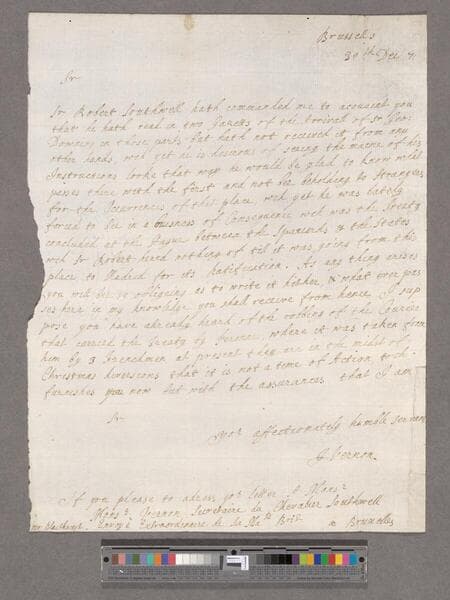 Brussells
30th Dec
Sr
Sr Robert Southwell hath commanded me to acquaint you
that he hath read in two Gazetts of the Arrival of Sr Geo:
Downing in those parts but hath not received it from any
other hands, wch yet he is desirous of seeing the maine of his
Instructions looks that way he would be glad to know what
passes there with the first and not be beholding to strangers
for the Occurrences of that place, wch yet he was lately
forced to bee in a business of Consequence wch was the treaty
concluded at the Hague between the Spaniards & the States
wch Sr Robert heard nothing of til it was going from this
place to Madrid for its Ratification. As any thing arises
you will bee so obliging as to write it hither, & what ever pas
ses here in my knowledge you shall receive from hence. I sup
pose you have already heard of the robbing of the Courier
that carried the Treaty of , where it was taken from
him by 3 Frenchmen at present they are in the midst of
Christmas diversions that it is not a time of Action, wch
furnishes you now but with the assurances that I am
Sr
yor affectionately humble servant
J Vernon.
If you please to adress yor letter A Monsr
Monsr Vernon Secretaire du Chevalier Southwell
Envoyé Extraordinaire de Sa Matie Brit a Bruxelles